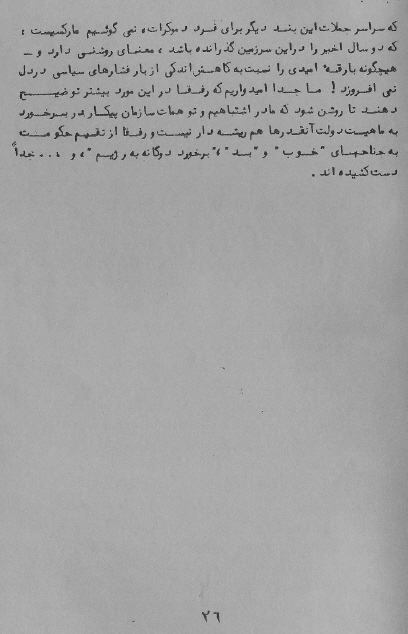 که سراسر جملات این بند دیگر برای فرد دموکرات، نمی گوئیم مارکسیست،
که دو سال اخیر را در این سرزمین گذرانده باشد، معنای روشنی دارد و ـ
هیچگونه بارقهٔ امیدی را نسبت به کاهش اندکی از بار فشارهای سیاسی در دل
نمی افروزد! ما جدا امیدواریم که رفقا در این مورد بیشتر توضیح
دهند تا روشن شود که ما در اشتباهیم و توهمات سازمان پیکار در برخورد
به ماهیت دولت آنقدرها هم ریشه دار نیست و رفقا از تقیم حکومت
به جناحهای "خوب" و "بد"، "برخورد دوگانه به رژیم"، و ... جداً
دست کشیده اند.
۲۶